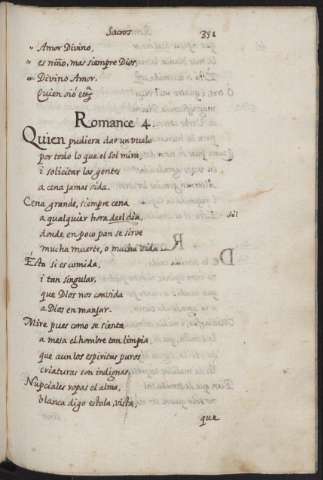 Sacros 351
" Amor Divino,
" es niño, mas siempre Dios,
" Divino Amor.
Quien vió etc
Romance 4.
Quien pudiera dar un vuelo
por todo lo que el sol mira
i solicitar las gentes
a cena jamas vista.
Cena grande, siempre cena
a qualquier hora del dia,
donde en poco pan se sirve
mucha muerte, o mucha vida
Esta si es comida,
i tan singular,
que Dios nos convida
a Dios en manjar.
Mire pues como se sienta
a mesa el hombre tan limpia,
que aun los espiritus puros
criaturas son indignas.
Nupciales ropas el alma,
blanca digo estola, vista,
que